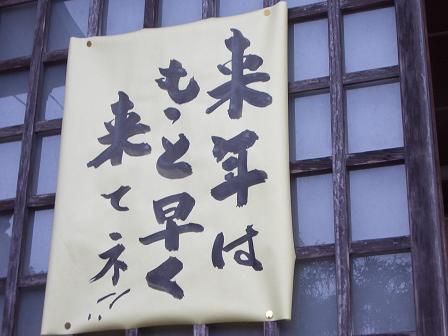 来年は
もっと早く
来てネ!!